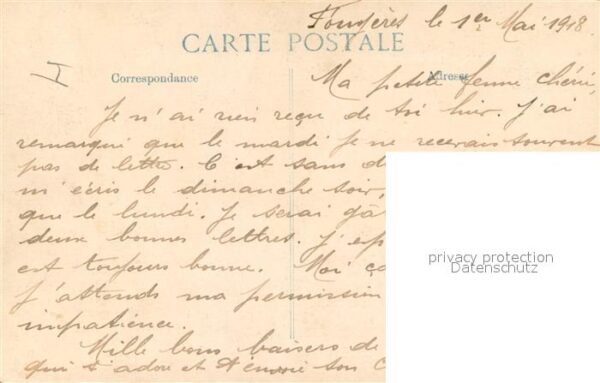 Fougères le 1er Mai 1918.
CARTE POSTALE
I
Correspondance
Adresse
Ma petite femme chérie,
Je n'ai rien reçu de toi hier. J'ai
remarqué que le mardi je ne recevais souvent
pas de lettre. C'est sans d
m'écris le dimanche soir,
que le lundi. Je serai gâ
deux bonnes lettres. J'esp
est toujours bonne. Moi ça
J'attends ma permission
impatience.
Mille bons baisers de
qui t'adore et t'envoie son C
privacy protection
Datenschutz